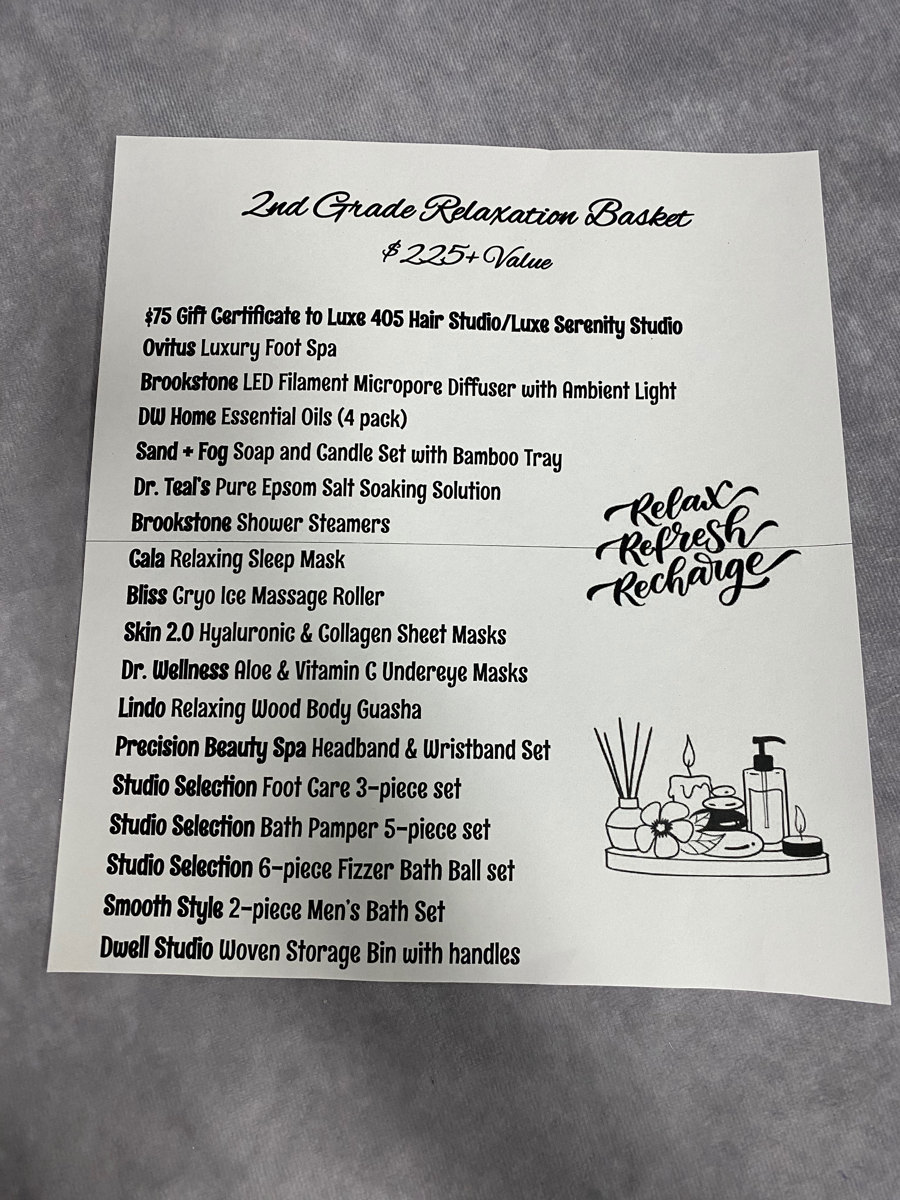 2nd Grade Relaxation Basket
$225+ Value
$75 Gift Certificate to Luxe 405 Hair Studio/Luxe Serenity Studio
Ovitus Luxury Foot Spa
Brookstone LED Filament Micropore Diffuser with Ambient Light
DW Home Essential Oils (4 pack)
Sand + Fog Soap and Candle Set with Bamboo Tray
Dr. Teal's Pure Epsom Salt Soaking Solution
Brookstone Shower Steamers
Cala Relaxing Sleep Mask
Bliss Cryo Ice Massage Roller
Skin 2.0 Hyaluronic & Collagen Sheet Masks
Dr. Wellness Aloe & Vitamin C Undereye Masks
Lindo Relaxing Wood Body Guasha
Precision Beauty Spa Headband & Wristband Set
Studio Selection Foot Care 3-piece set
Studio Selection Bath Pamper 5-piece set
Studio Selection 6-piece Fizzer Bath Ball set
Smooth Style 2-piece Men's Bath Set
Dwell Studio Woven Storage Bin with handles
Relax
Refresh
Recharge